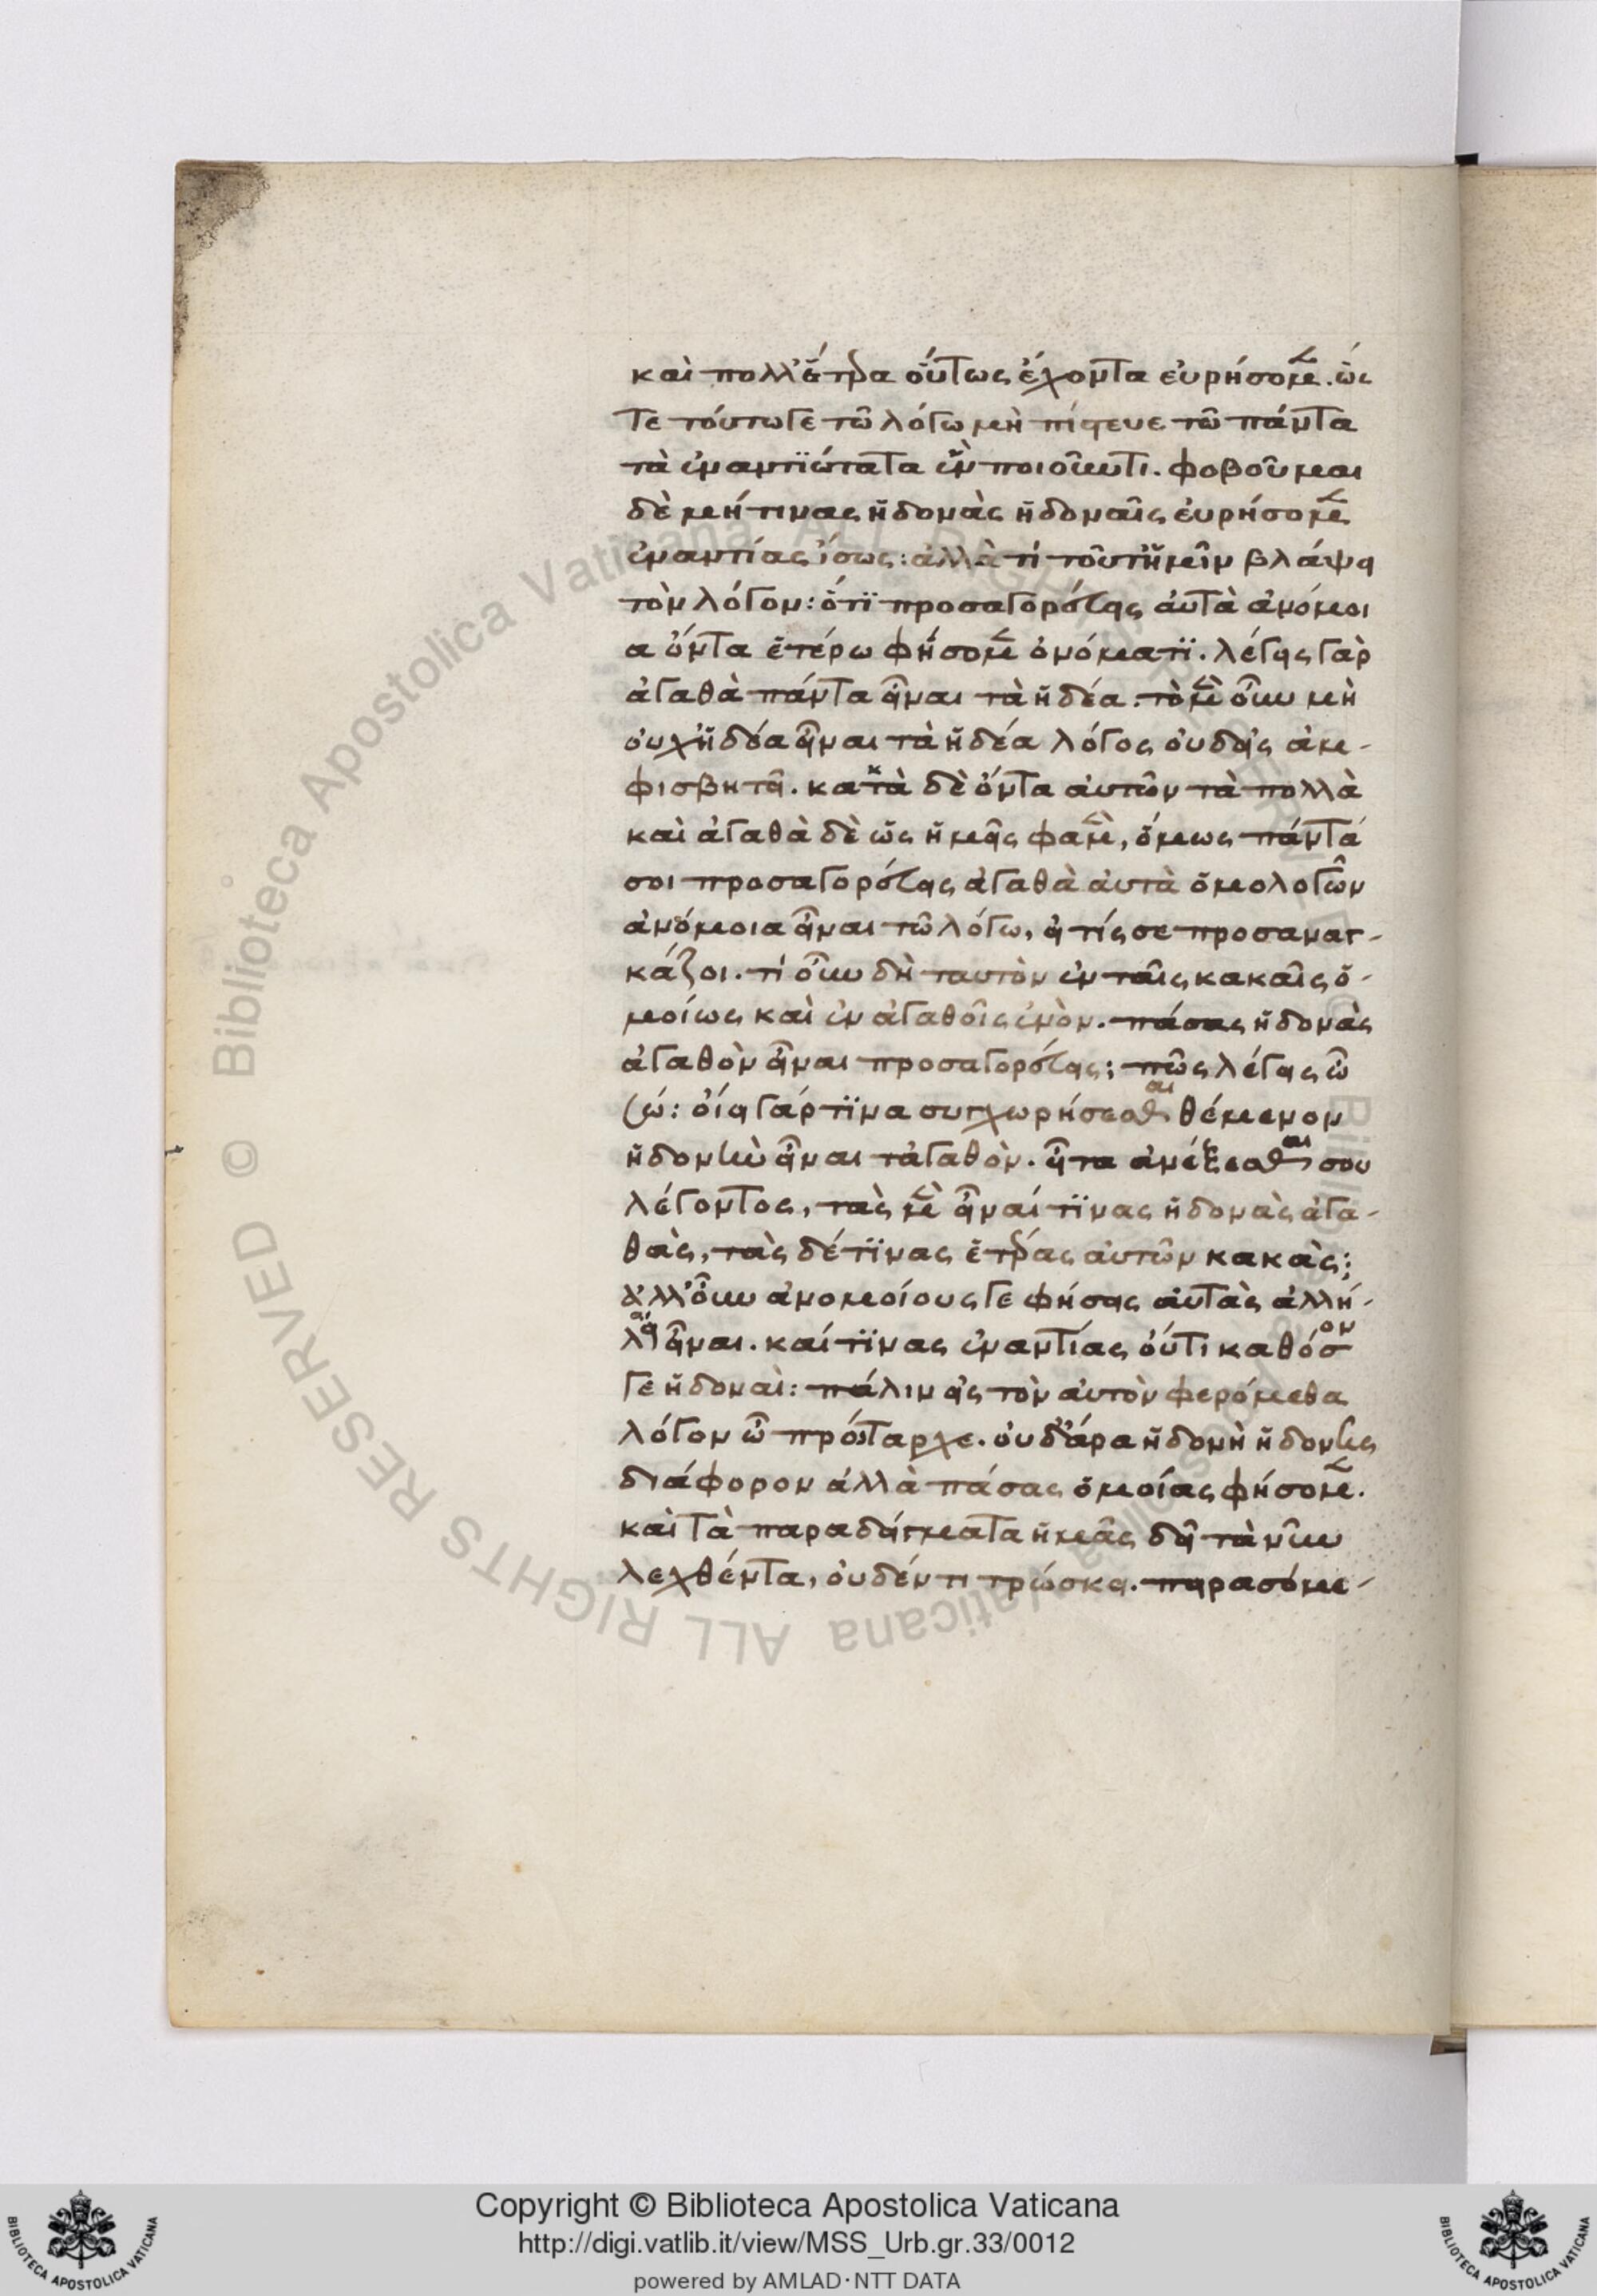 καὶ πολλἕτερα οὕτως ἔχοντα εὑρήσομεν. ὥς
τε τούτωγε τῶ λόγω μὴ πίστευε τῶ πάντα
τὰ ἐναντϊώτατα ἓν ποιοῦντι. φοβοῦμαι
δὲ μή τινας ἡδονὰς ἡδοναῖς εὑρήσομεν
ἐναντίας ἴσως: ἀλλὰ τί τοῦτἡμῖν βλάψει
τὸν λόγον: ὅτϊ προσαγορεύεις αὐτὰ ἀνόμοι
α ὄντα ἑτέρω φήσομεν ὀνόματϊ. λέγεις γὰρ
ἀγαθὰ πάντα εἶναι τὰ ἡδέα. τὸ μὲν οὖν μὴ
οὐχἡδέα εἶναι τὰ ἡδέα λόγος οὐδεὶς ἀμ-
φισβητεῖ. κακὰ δὲ ὄντα αὐτῶν τὰ πολλὰ
καὶ ἀγαθὰ δὲ ὡς ἡμεῖς φαμὲν, ὅμως πάντά
σοι προσαγορεύεις ἀγαθὰ αὐτὰ ὁμολογῶν
ἀνόμοια εἶναι τῶ λόγω, εἴ τίς σε προσαναγ-
κάζοι. τί οὖν δὴ ταυτὸν ἐν ταῖς κακαῖς ὁ-
μοίως καὶ ἐν ἀγαθοῖς ἐνὸν. πάσας ἡδονὰς
ἀγαθὸν εἶναι προσαγορεύεις; πῶς λέγεις ὦ
σώ: οἴει γάρ τϊνα συγχωρήσεσθαι θέμενον
ἡδονὴν εἶναι τἀγαθὸν. εἶτα ἀνέξεσθαι σου
λέγοντος, τὰς μὲν εἶναί τϊνας ἡδονὰς ἀγα-
θὰς, τὰς δέ τϊνας ἑτέρας αὐτῶν κακὰς;
ἀλλοὖν ἀνομοίους γε φήσεις αὐτὰς ἀλλή-
λαις εἶναι. καί τϊνας ἐναντίας οὔτι καθόσον
γε ἡδοναὶ: πάλιν εἰς τὸν αὐτὸν φερόμεθα
λόγον ὦ πρώταρχε. οὐδἄρα ἡδονὴ ἡδονῆς
διάφορον ἀλλὰ πάσας ὁμοίας φήσομεν.
καὶ τὰ παραδείγματα ἡμᾶς δεῖ τὰ νῦν
λεχθέντα, οὐδέν τι τρώσκει. πειρασόμε-
Copyright © Biblioteca Apostolica Vaticana
http://digi.vatlib.it/view/MSS_Urb.gr.33/0012
powered by AMLAD·NTT DATA